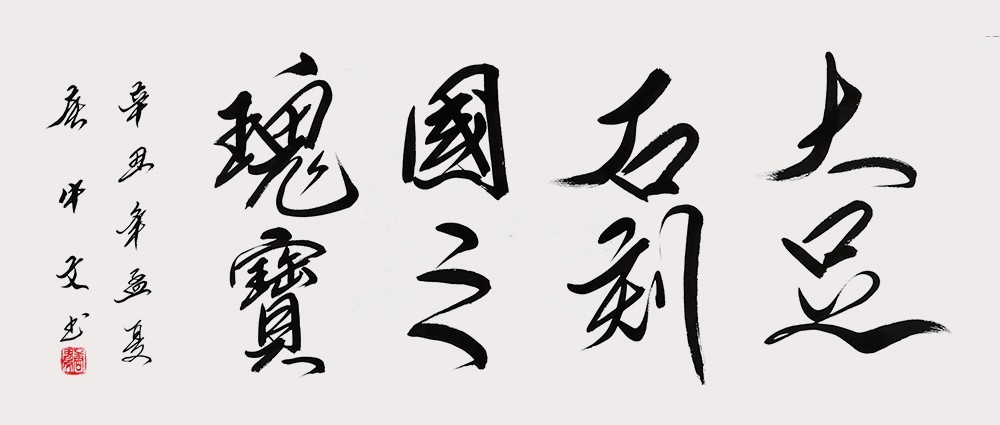 大足
石刻
國之
瑰寶
辛丑年孟夏
屈中文书